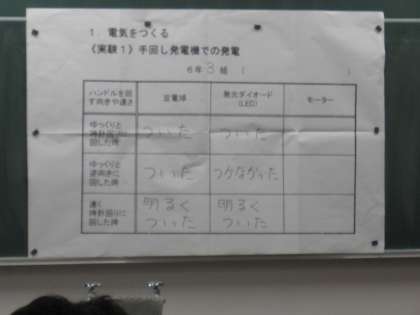 1. 電気をつくる
《実験1》手回し発電機での発電
6年3組 ( )
ハンドルを回す向きや速さ
豆電球
発光ダイオード (LED)
モーター
ゆっくりと
時計回りに
回した時
ついた
ついた
ゆっくりと
逆向きに
回した時
ついた
つかなかった
速く
時計回りに
回した時
明るく
ついた
明るく
ついた